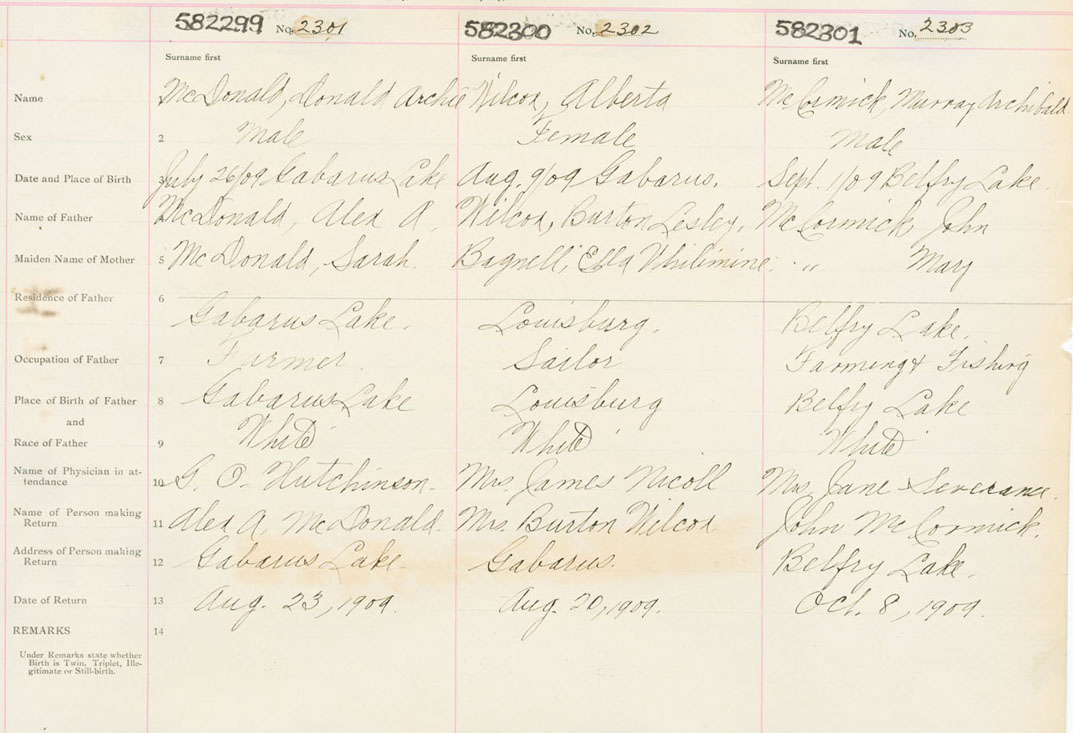 582299 No. 2301 582300 No. 2302 582301 No. 2303
Surname first Surname first Surname first
Name McDonald, Donald Archie Wilcox, Alberta McCormick, Murray Archibald
Sex 2 Male Female Male
Date and Place of Birth 3 July 26/09 Gabarus Lake Aug. 9/09 Gabarus. Sept. 1/09 Belfry Lake.
Name of Father McDonald, Alex A. Wilcox, Burton Lesley, McCormick, John
Maiden Name of Mother 5 McDonald, Sarah. Bagnell, Ella Whilimine. " Mary
Residence of Father 6 Gabarus Lake. Louisburg. Belfry Lake.
Occupation of Father 7 Farmer. Sailor Farming & Fishing
Place of Birth of Father 8 Gabarus Lake Louisburg Belfry Lake
and
Race of Father 9 White White White
Name of Physician in at-
tendance 10 G. O. Hutchinson. Mrs James Nicoll Mrs. Jane Severance.
Name of Person making
Return 11 Alex A. McDonald. Mrs. Burton Wilcox John McCormick.
Address of Person making
Return 12 Gabarus Lake. Gabarus. Belfry Lake.
Date of Return 13 Aug. 23, 1909. Aug. 20, 1909. Oct. 8, 1909.
REMARKS 14
Under Remarks state whether
Birth is Twin, Triplet, Ille-
gitimate or Still-birth.